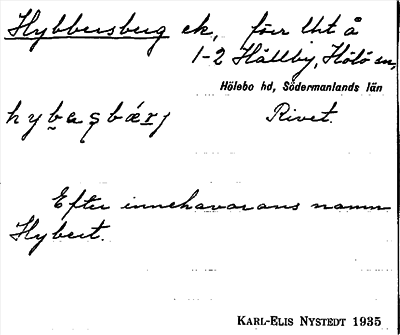 Hybbersberg ek, förr lht å
1-2 Hållby, Hölö sn,
Hölebo hd, Södermanlands län
Rivet.
Efter innehavarans namn
Hybert.
KARL-ELIS NYSTEDT 1935